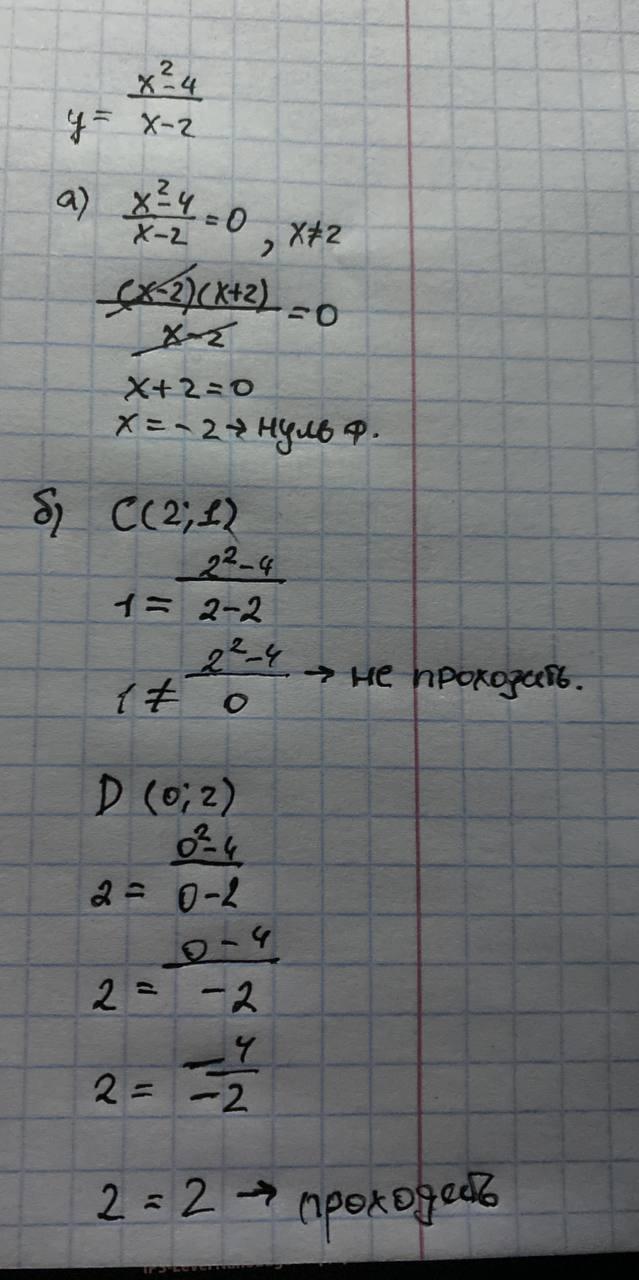 y = (x²-4)/(x-2)
а) (x²-4)/(x-2) = 0, x≠2
((x-2)(x+2))/(x-2) = 0
x+2=0
x=-2→нуль ф.
б) C(2;1)
1 = (2²-4)/(2-2)
1 ≠ (2²-4)/0 → не проходить.
D (0;2)
2 = (0²-4)/(0-2)
2 = (0-4)/(-2)
2 = (-4)/(-2)
2 = 2 → проходить